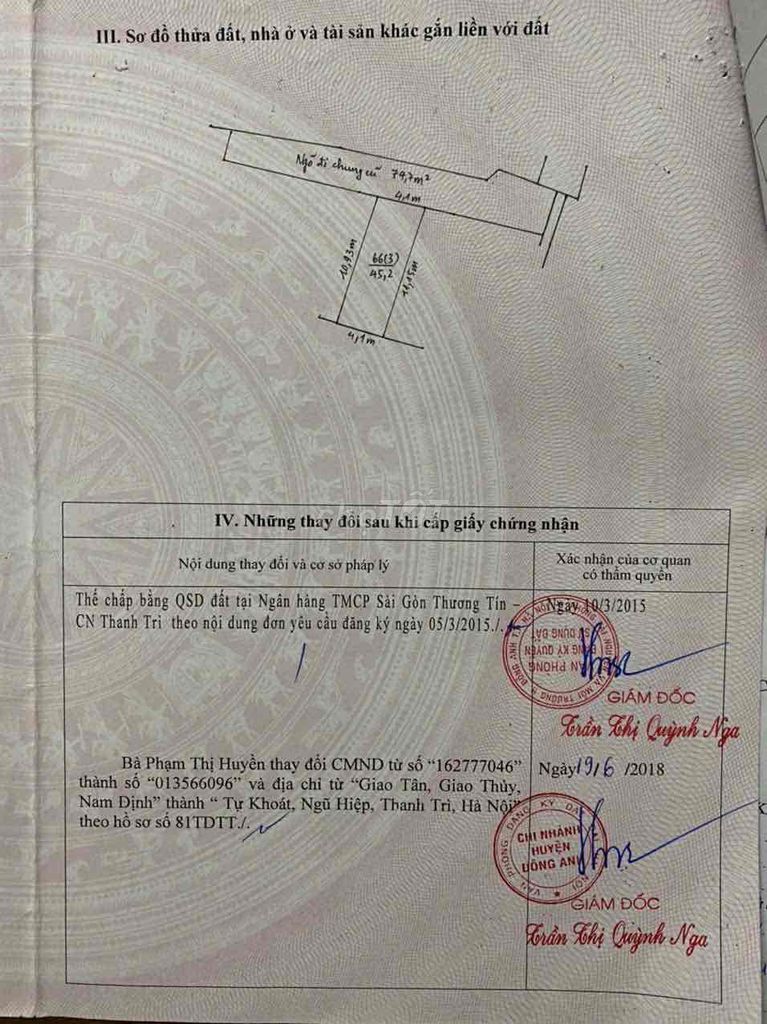 III. Sơ đồ thửa đất, nhà ở và tài sản khác gắn liền với đất
Ngõ đi chung cũ 79,7m²
4,1m
10,93m
66(3)
45,2
11,15m
4,1m
IV. Những thay đổi sau khi cấp giấy chứng nhận
Nội dung thay đổi và cơ sở pháp lý
Xác nhận của cơ quan
có thẩm quyền
Thế chấp bằng QSD đất tại Ngân hàng TMCP Sài Gòn Thương Tín –
CN Thanh Trì theo nội dung đơn yêu cầu đăng ký ngày 05/3/2015./.
Ngày 10/3/2015
VĂN PHÒNG
ĐĂNG KÝ QUYỀN
SỬ DỤNG ĐẤT
GIÁM ĐỐC
Trần Thị Quỳnh Nga
Bà Phạm Thị Huyền thay đổi CMND từ số “162777046”
thành số “013566096” và địa chỉ từ “Giao Tân, Giao Thủy,
Nam Định” thành “ Tự Khoát, Ngũ Hiệp, Thanh Trì, Hà Nội”
theo hồ sơ số 81TDTT./.
Ngày 19/6 /2018
VĂN PHÒNG ĐĂNG KÝ ĐẤT
CHI NHÁNH
HUYỆN
ĐÔNG ANH
GIÁM ĐỐC
Trần Thị Quỳnh Nga